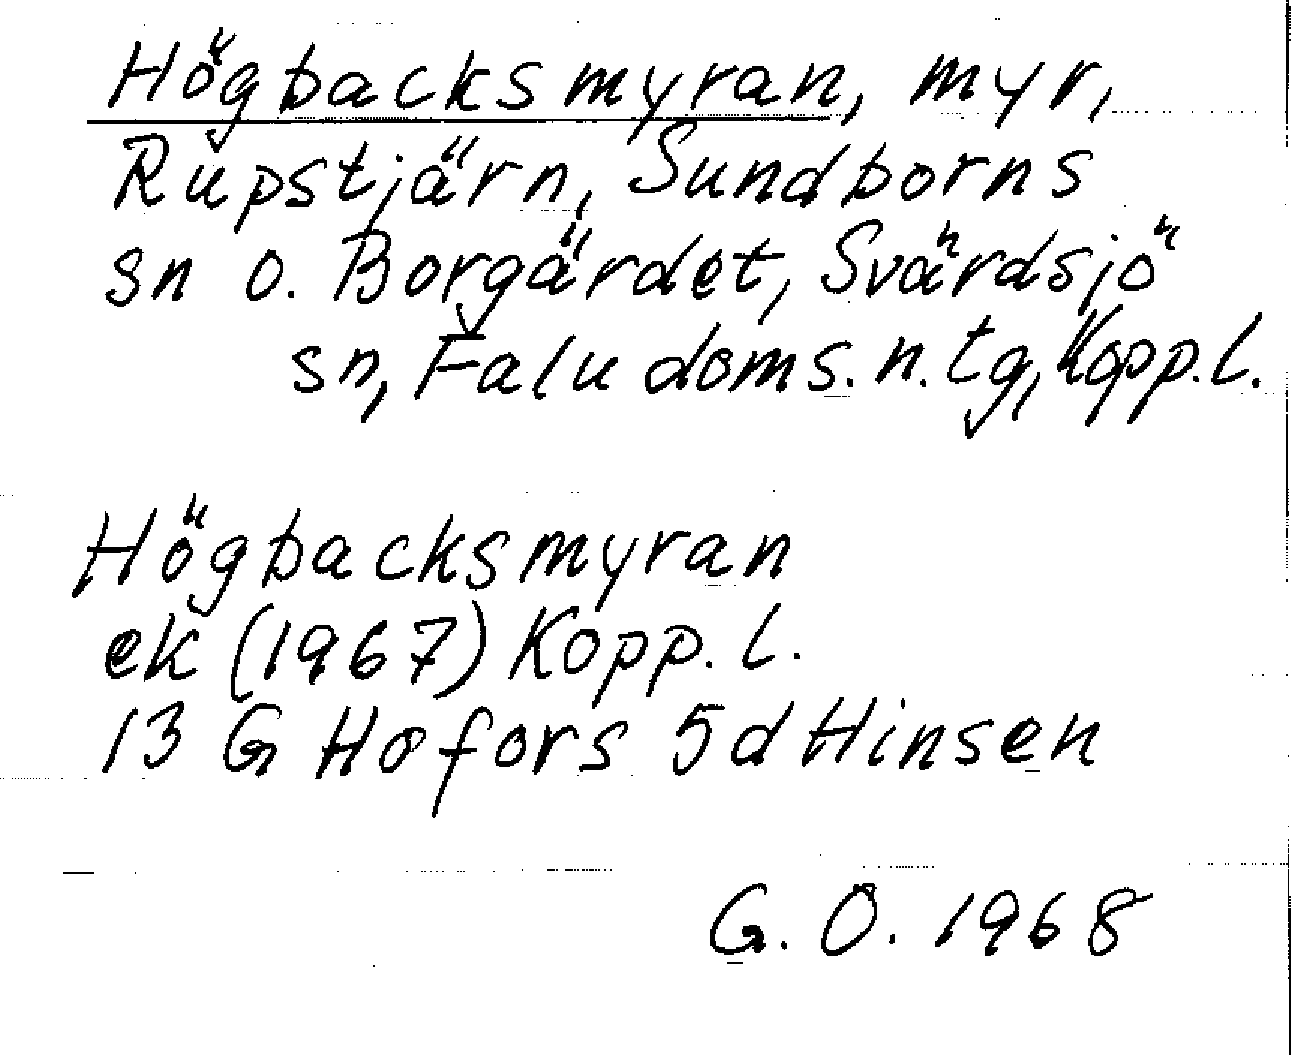 Högbacksmyran, myr,
Rupstjärn, Sundborns
sn o. Borgärdet, Svärdsjö
sn, Falu doms. n. tg, Kopp. l.
Högbacksmyran
ek (1967) Kopp. l.
13 G Hofors 5d Hinsen
G. O. 1968